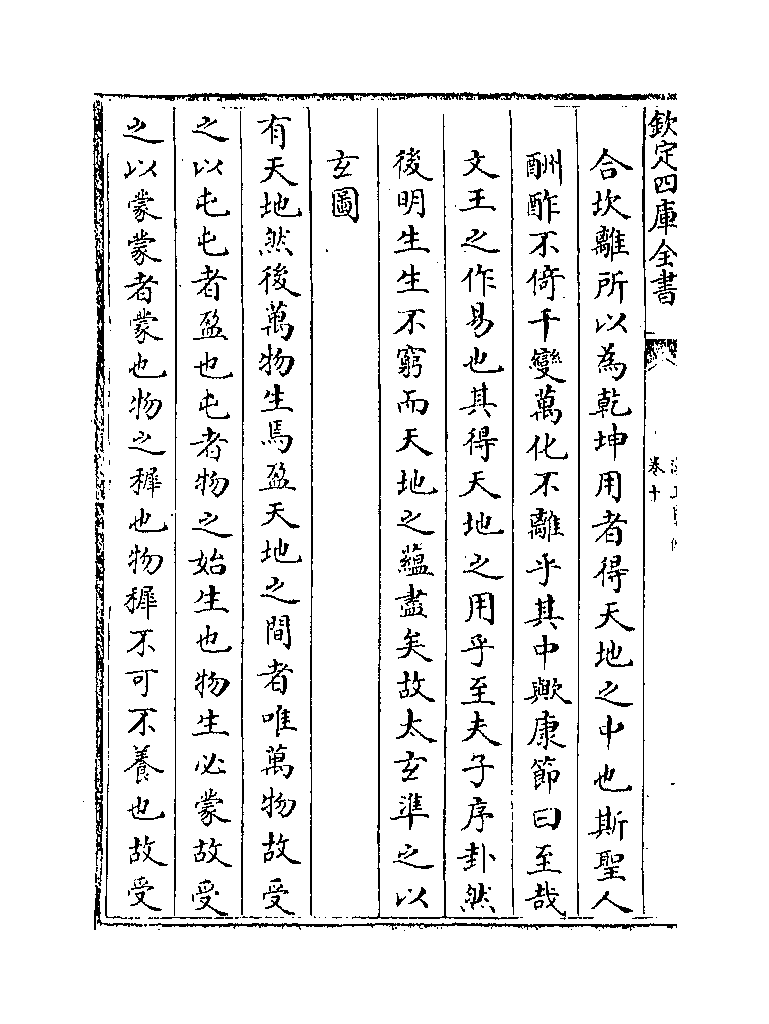 欽定四庫全書
卷十
合坎離所以為乾坤用者得天地之中也斯聖人
酬酢不倚千變萬化不離乎其中歟康節曰至哉
文王之作易也其得天地之用乎至夫子序卦然
後明生生不窮而天地之蘊盡矣故太玄準之以
玄圖
有天地然後萬物生焉盈天地之間者唯萬物故受
之以屯屯者盈也屯者物之始生也物生必蒙故受
之以蒙蒙者蒙也物之穉也物穉不可不養也故受